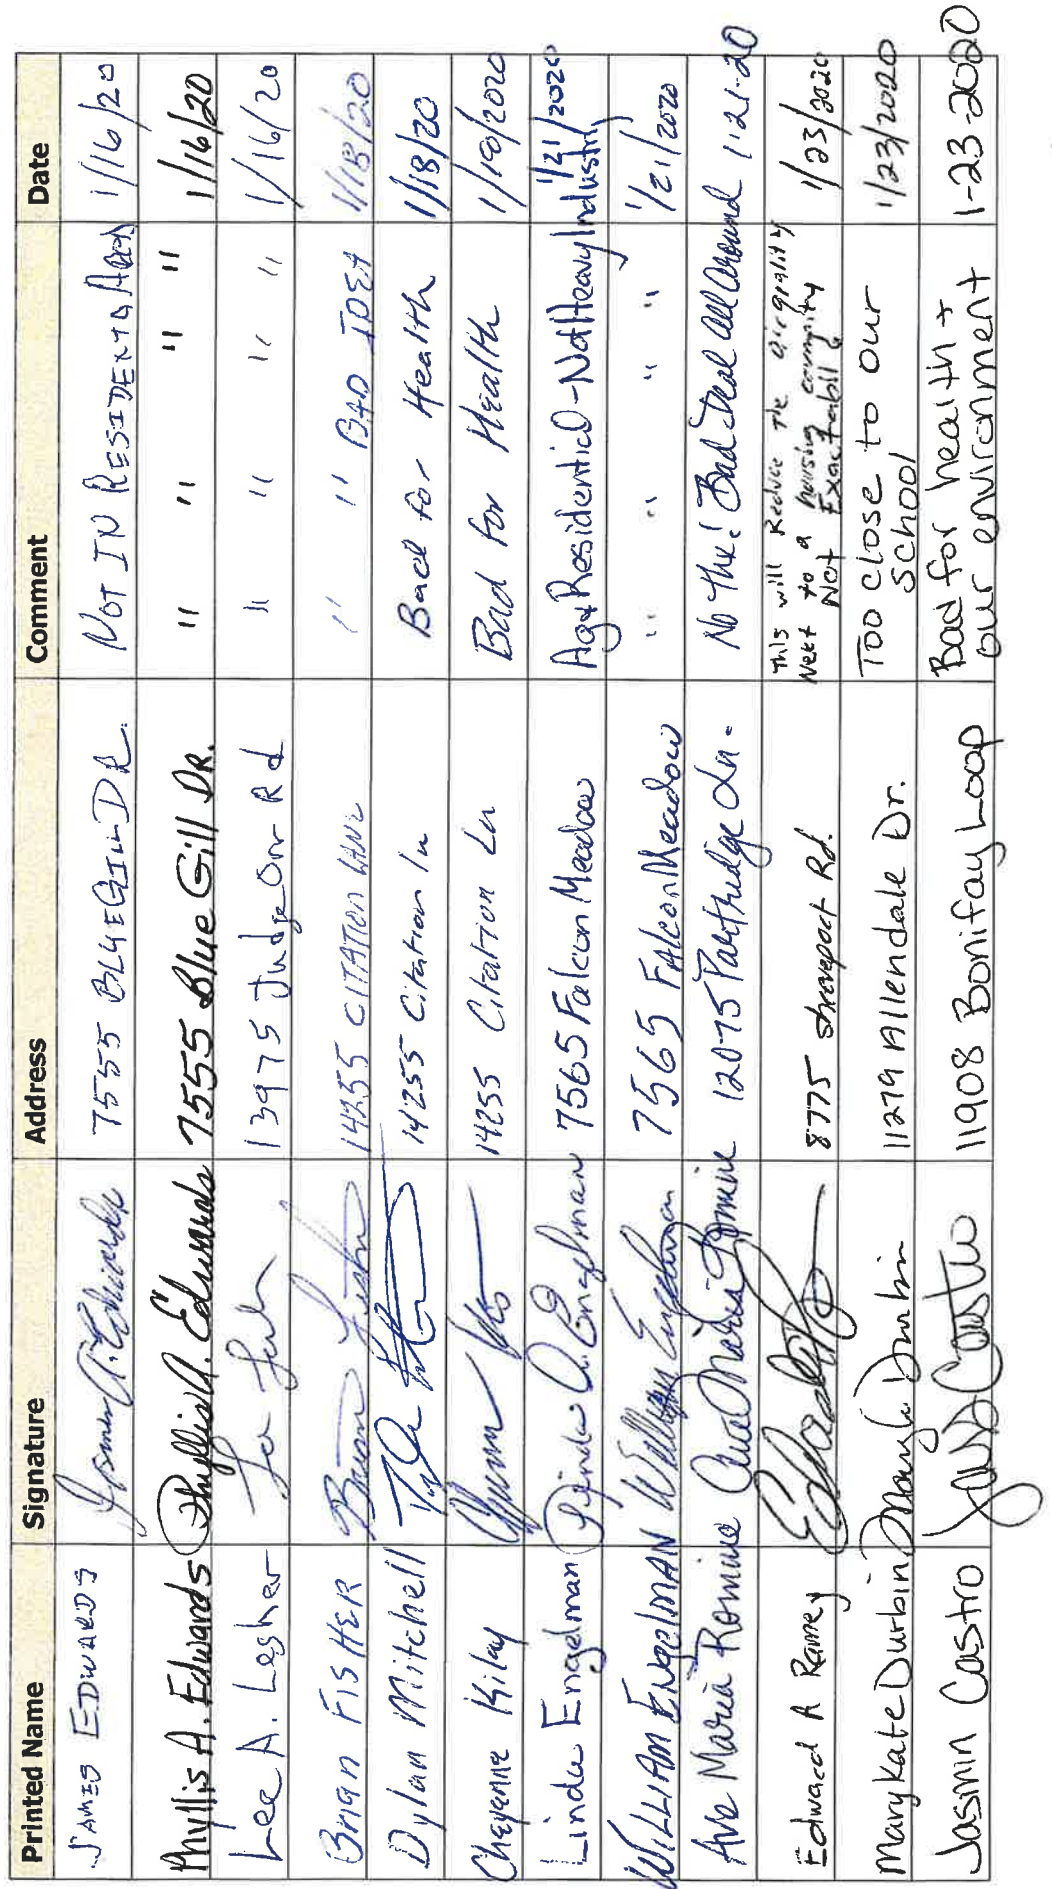 Printed Name Signature Address Comment Date
JAMES EDWARDS 7555 BLUEGILL DR. NOT IN RESIDENTIAL AREA 1/16/20
Phyllis A. Edwards Phyllis A. Edwards 7555 Blue Gill DR. " " " " 1/16/20
Lee A. Lesher 13975 Judge Orr Rd " " " " 1/16/20
Brian FISHER Brian Fisher 14255 CITATION LANE " " BAD IDEA 1/18/20
Dylan Mitchell 14255 Citation Ln Bad for Health 1/18/20
Cheyenne Kilay 14255 Citation Ln Bad for Health 1/18/2020
Linda Engelman Linda A. Engelman 7565 Falcon Meadow Ag & Residential - Not Heavy Industry 1/21/2020
WILLIAM ENGELMAN William Engelman 7565 Falcon Meadow " " " " 1/21/2020
Ava Maria Romine Ava Maria Romine 12075 Partridge Ln. No Thx! Bad Deal all around 1-21-20
Edward A Ramey 8775 Shreveport Rd. This will Reduce The air quality
Next to a housing community
Not Exactable 1/23/2020
Mary Kate Durbin 11279 Allendale Dr. Too close to our
school 1/23/2020
Jasmin Castro Jasmin Castro 11908 Bonifay Loop Bad for health +
our environment 1-23-2020